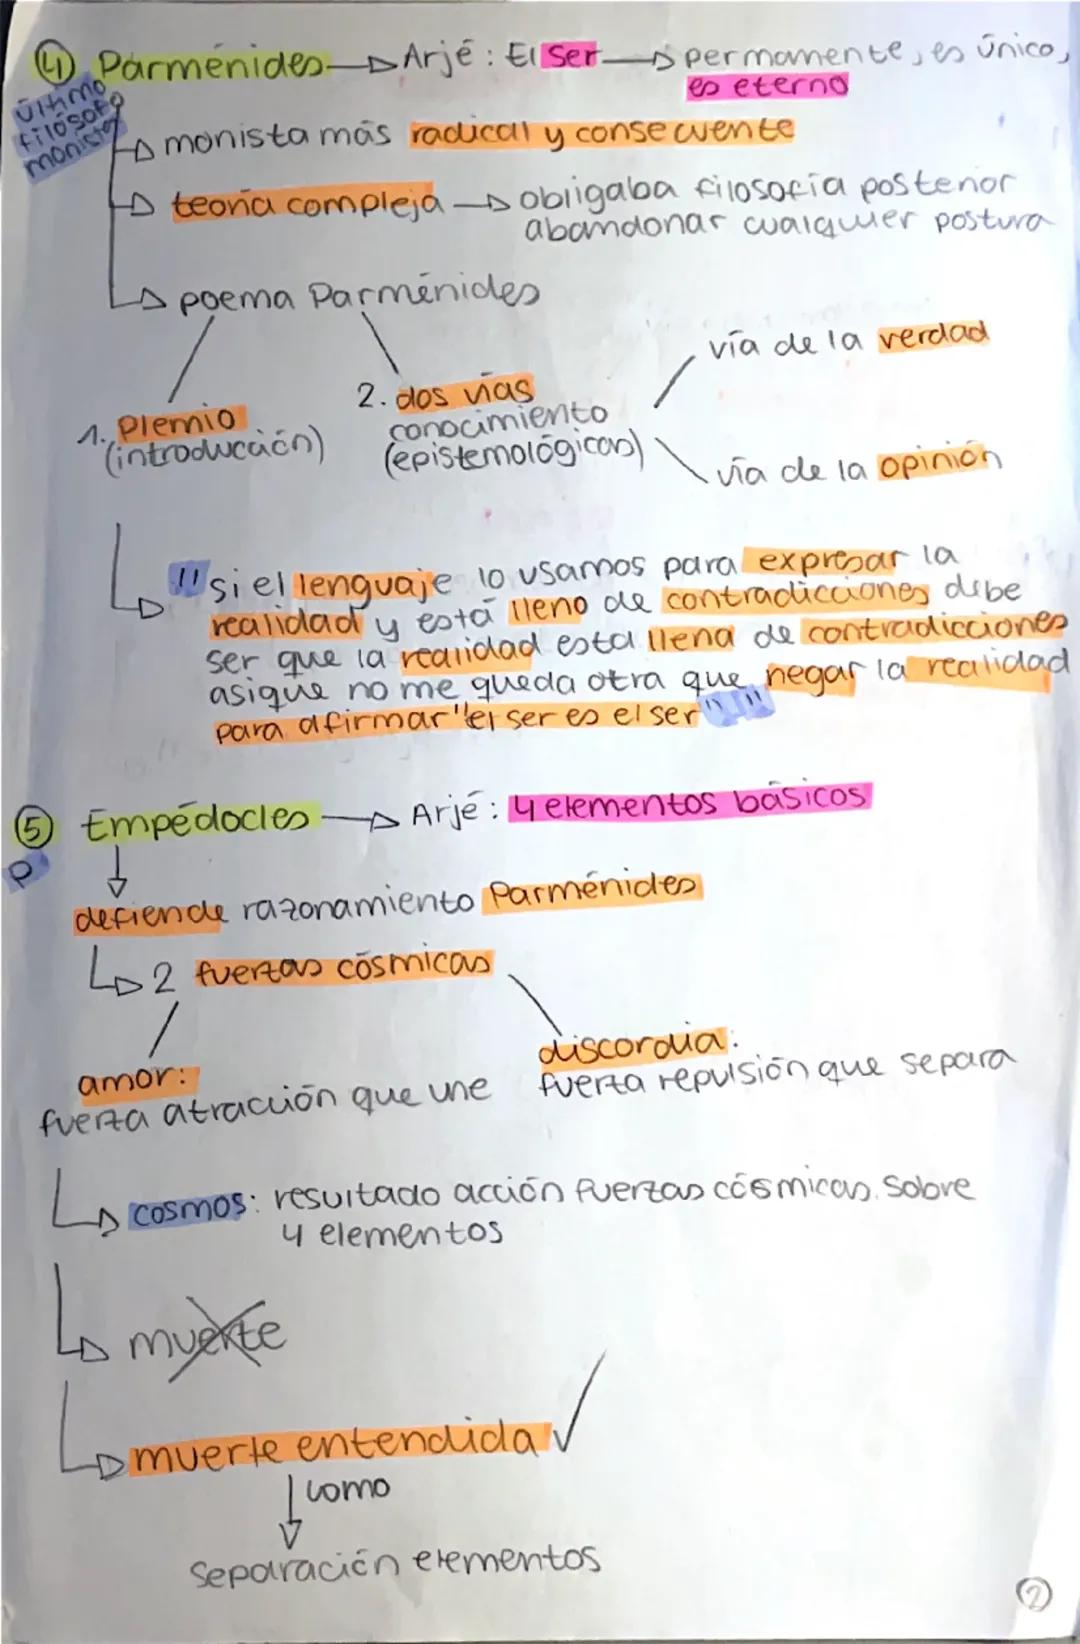 4 Parménides → Arjé: El Ser → permamente, es único,
es eterno
último
filósofo
monista
monista más radical y consecuente
teoría compleja → obligaba filosofía posterior
abandonar cualquier postura
poema Parménides
vía de la verdad
1. Plemio
(introducción)
2. dos vías
conocimiento
(epistemológicas)
vía de la opinión
"si el lenguaje lo usamos para expresar la
realidad y está lleno de contradicciones debe
ser que la realidad esta llena de contradicciones
asique no me queda otra que negar la realidad
para afirmar "el ser es el ser" "
5 Empédocles → Arjé: 4 elementos básicos
P
defiende razonamiento Parménides
2 fuerzas cósmicas
amor:
fuerza atracción que une
discordia:
fuerza repulsión que separa
cosmos: resultado acción fuerzas cósmicas sobre
4 elementos
muerte
muerte entendida ✓
como
separación elementos
2